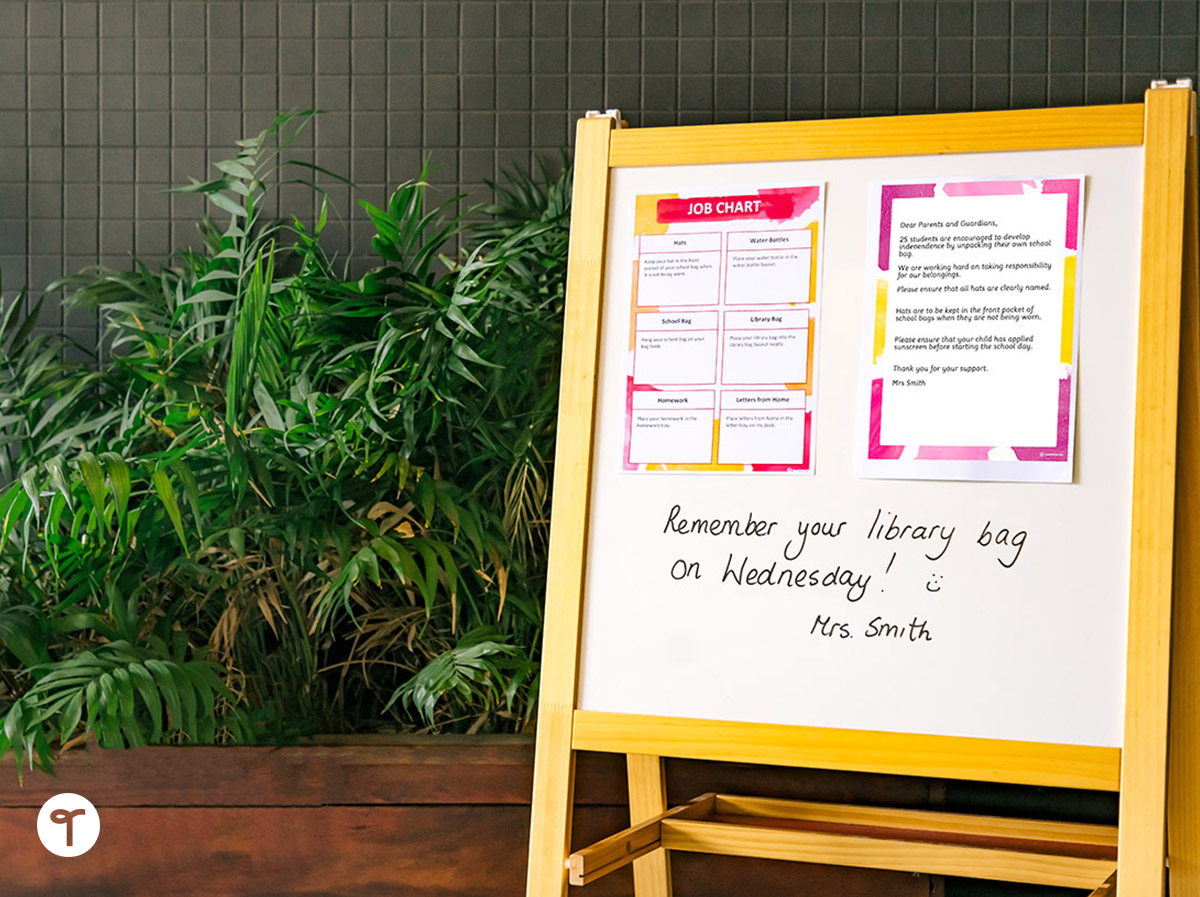 JOB CHART
Hats
Keep your hat in the front
pocket of your school bag when
it is not being worn.
Water Bottles
Place your water bottle in the
water bottle basket.
School Bag
Hang your school bag on your
bag hook.
Library Bag
Place your library bag into the
library bag basket neatly.
Homework
Place your homework in the
homework tray.
Letters from Home
Place letters from home in the
letter tray on my desk.
Dear Parents and Guardians,
25 students are encouraged to develop
independence by unpacking their own school
bag.
We are working hard on taking responsibility
for our belongings.
Please ensure that all hats are clearly named.
Hats are to be kept in the front pocket of
school bags when they are not being worn.
Please ensure that your child has applied
sunscreen before starting the school day.
Thank you for your support.
Mrs Smith
Remember your library bag
on Wednesday!
Mrs. Smith